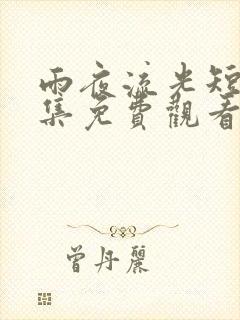 雨夜流光短
集免費觀看
曾丹麗